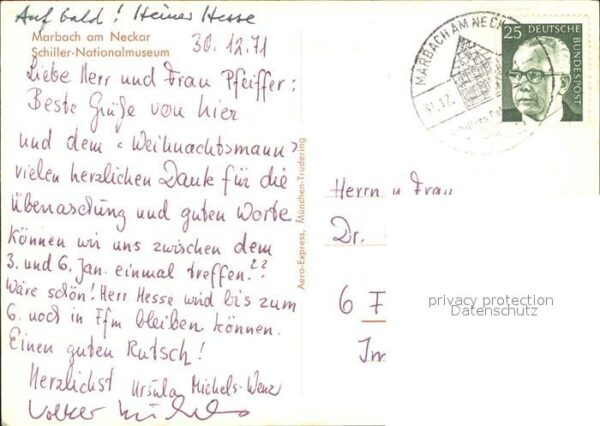 Auf bald! Heiner Hesse
Marbach am Neckar
Schiller-Nationalmuseum
30.12.71
Liebe Herr und Frau Pfeiffer:
Beste Grüße von hier
und dem <Weihnachtsmann>
vielen herzlichen Dank für die
Überraschung und guten Worte.
Können wir uns zwischen dem
3. und 6. Jan. einmal treffen??
Wäre schön! Herr Hesse wird bis zum
6. noch in Ffm bleiben können.
Einen guten Rutsch!
Herzlichst Ursula Michels-Wenz
Volker Michels
Aero-Express, München-Trudering
MARBACH AM NECK
31.12.
25 DEUTSCHE
BUNDESPOST
Herrn u Frau
Dr.
6 F
Im
privacy protection
Datenschutz